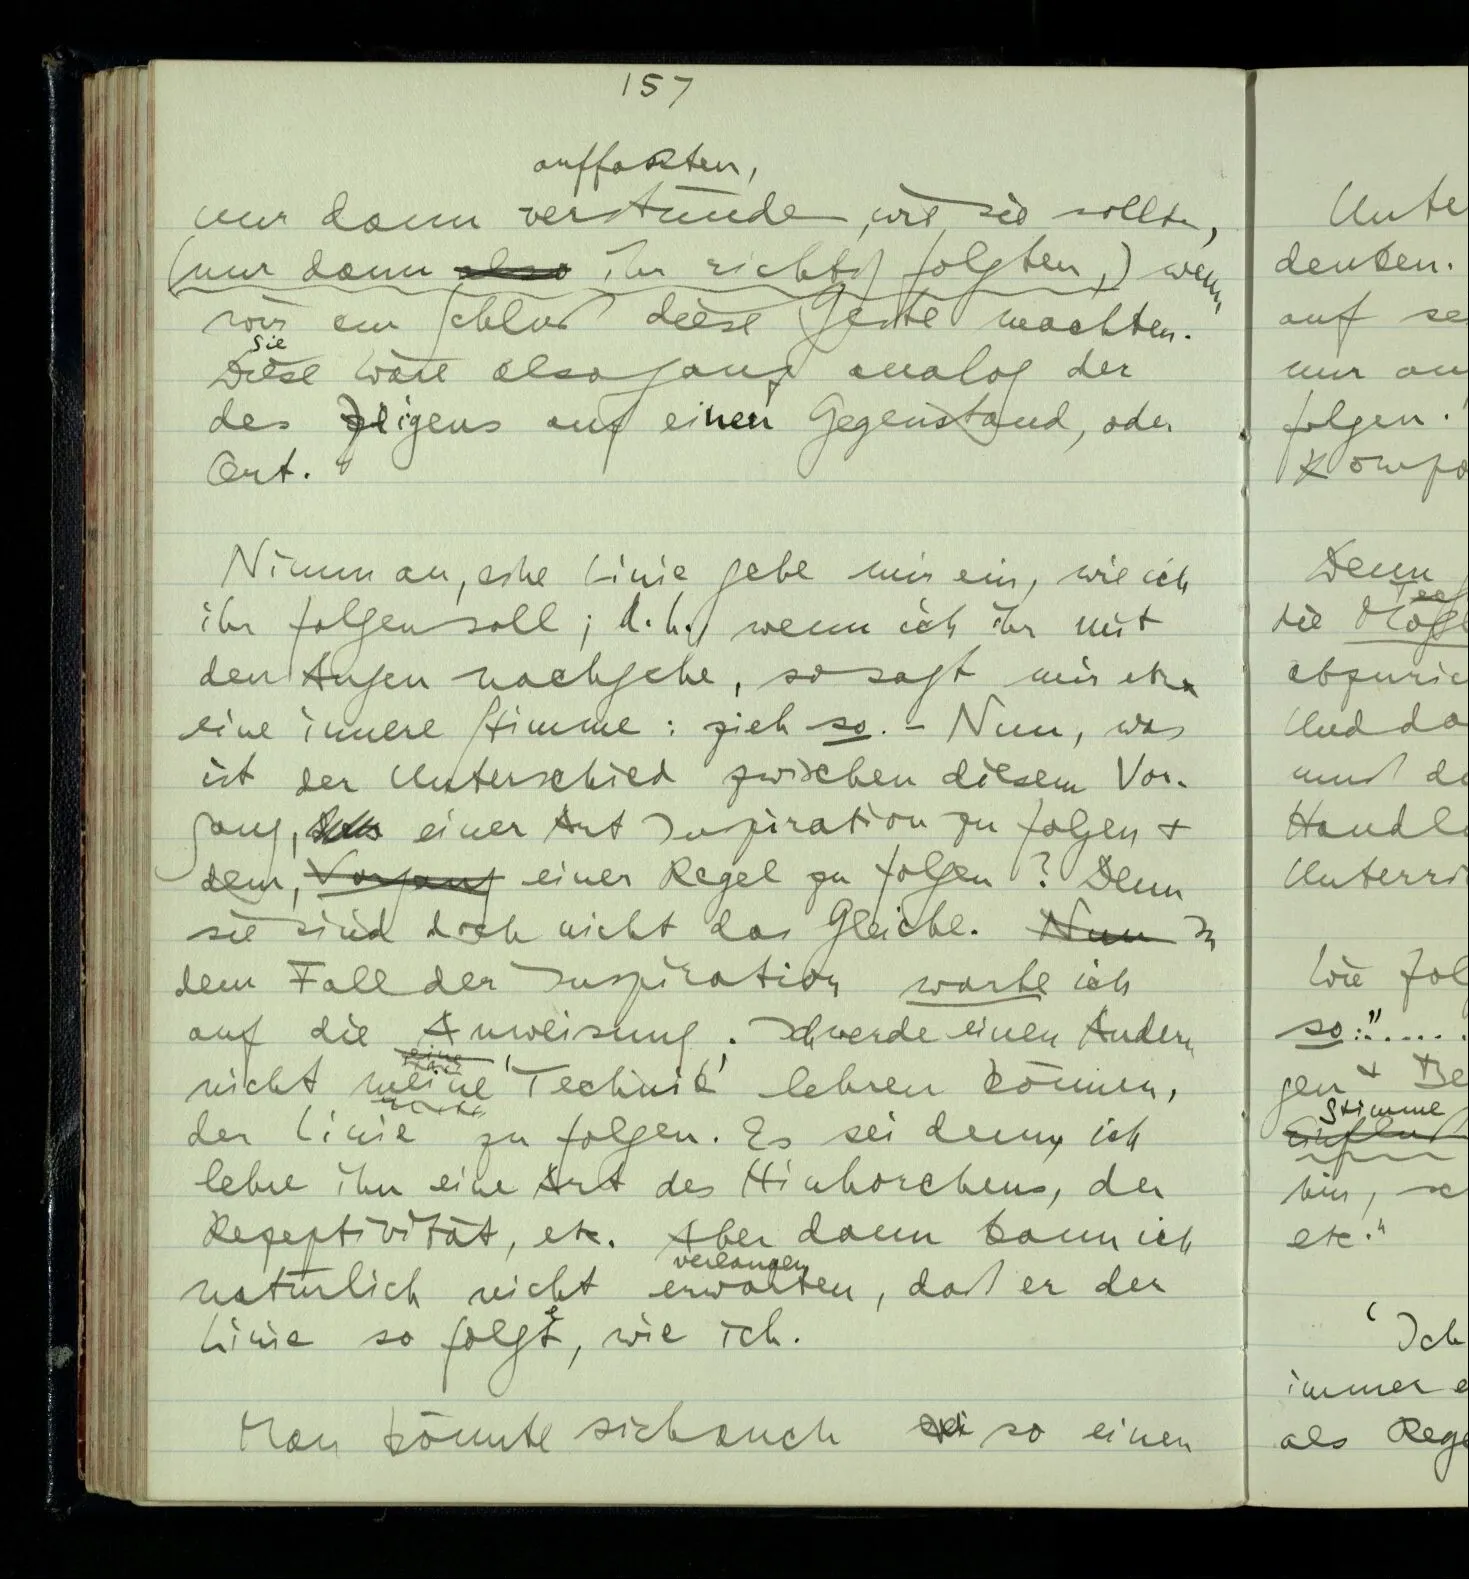 157
auffaßten,
nur dann verstünden, wie sie sollten,
(nur dann also ihr richtig folgten,) wenn
wir am Schluß diese Geste machten.
Sie
Diese wäre also ganz analog der
des Zeigens auf einen Gegenstand, oder
Ort.
Nimm an, eine Linie gebe mir ein, wie ich
ihr folgen soll; d.h., wenn ich ihr mit
den Augen nachgehe, so sagt mir etwa
eine innere Stimme: zieh so. – Nun, was
ist der Unterschied zwischen diesem Vor-
gang, einer Art Inspiration zu folgen +
dem, Vorgang einer Regel zu folgen? Denn
sie sind doch nicht das Gleiche. Nun In
dem Fall der Inspiration warte ich
auf die Anweisung. Ich werde einen Andern
eine
nicht meine 'Technik' lehren können,
der Linie zu folgen. Es sei denn, ich
lehre ihn eine Art des Hinhorchens, der
Rezeptivität, etc. Aber dann kann ich
verlangen
natürlich nicht erwarten, daß er der
Linie so folgt, wie ich.
Man könnte sich auch so einen
Unte
denken.
auf se
nur au
folgen.
Kompo
Denn
die Mögl
abzuric
Und da
muß de
Handl
Unterri
Wie fol
so:".....
gen + Be
Stimme
Einfluß
hin, sc
etc."
'Ich
immer e
als Rege